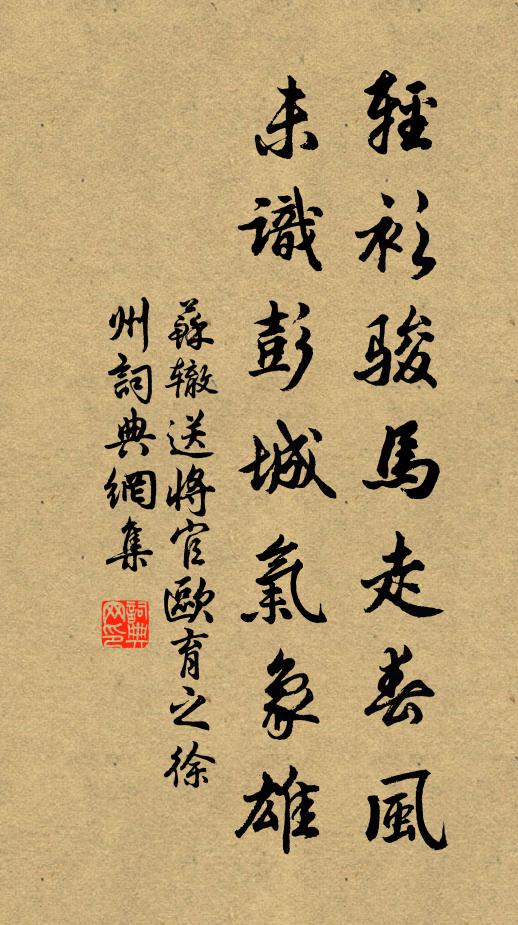 輕衫駿馬走春風
未識彭城氣象雄
蘇轍送將官歐育之徐
州詞典網集
詞典網印